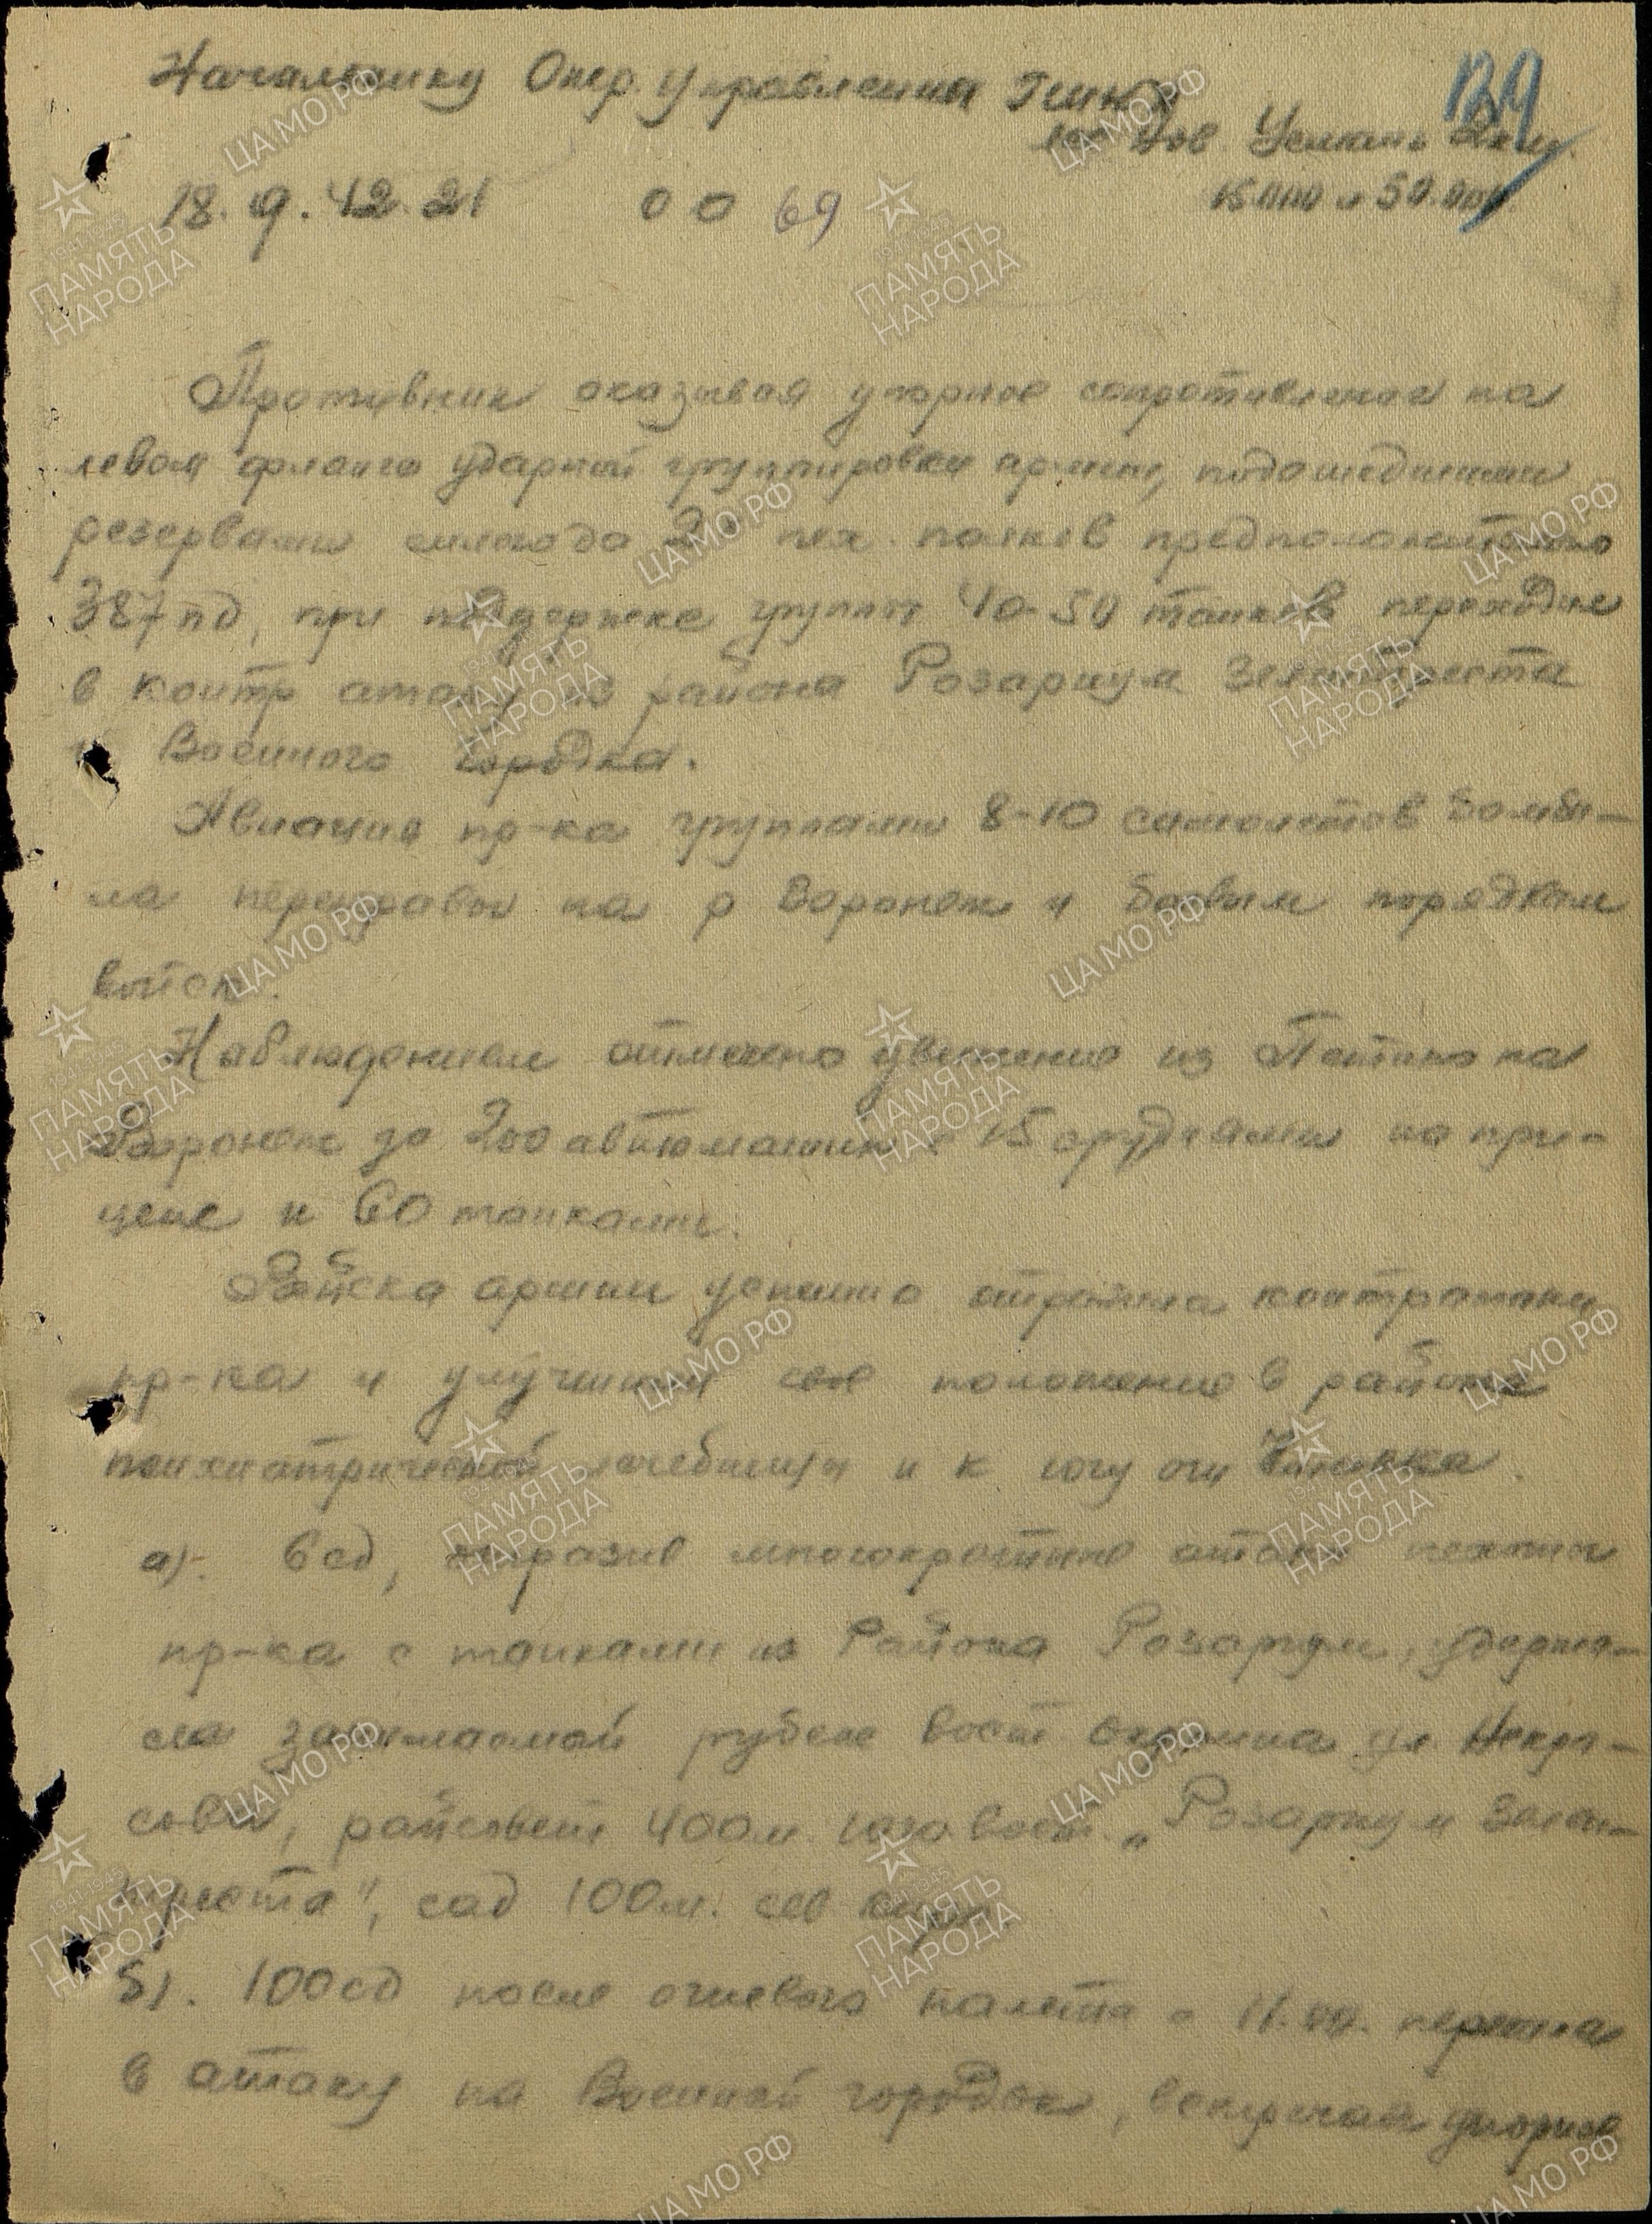 Начальнику Опер. Управления Гшка
129
Нов. Усмань 2км.
15.000 и 50.000.
18.9.42. 21 00 69
Противник оказывая упорное сопротивление на
левом фланге ударной группировки армии, подошедшими
резервами силою до 2х пех. полков предположительно
387 пд, при поддержке групп 40-50 танков переходил
в контр атаку из района Розариум Зелентреста
и Военного городка.
Авиация пр-ка группами 8-10 самолетов бомби-
ла переправы на р Воронеж и боевым порядкам
войск.
Наблюдением отмечено движение из Петино на
Воронеж до 200 автомашин с 15 орудиями на при-
цепе и 60 танками.
Войска армии успешно отразили контратаки
пр-ка и улучшили свое положение в районе
психиатрической лечебницы и к югу от Чижовка.
а). 6 сд, отразив многократные атаки пехоты
пр-ка с танками из района Розариум, удержа-
ла занимаемый рубеж вост окраина ул. Некра-
сова, райсовет 400м. юго вост. „Розариум Зелен-
треста", сад 100м. сев
б). 100 сд после огневого налета в 11.00. перешла
в атаку на Военный городок, встречая упорное